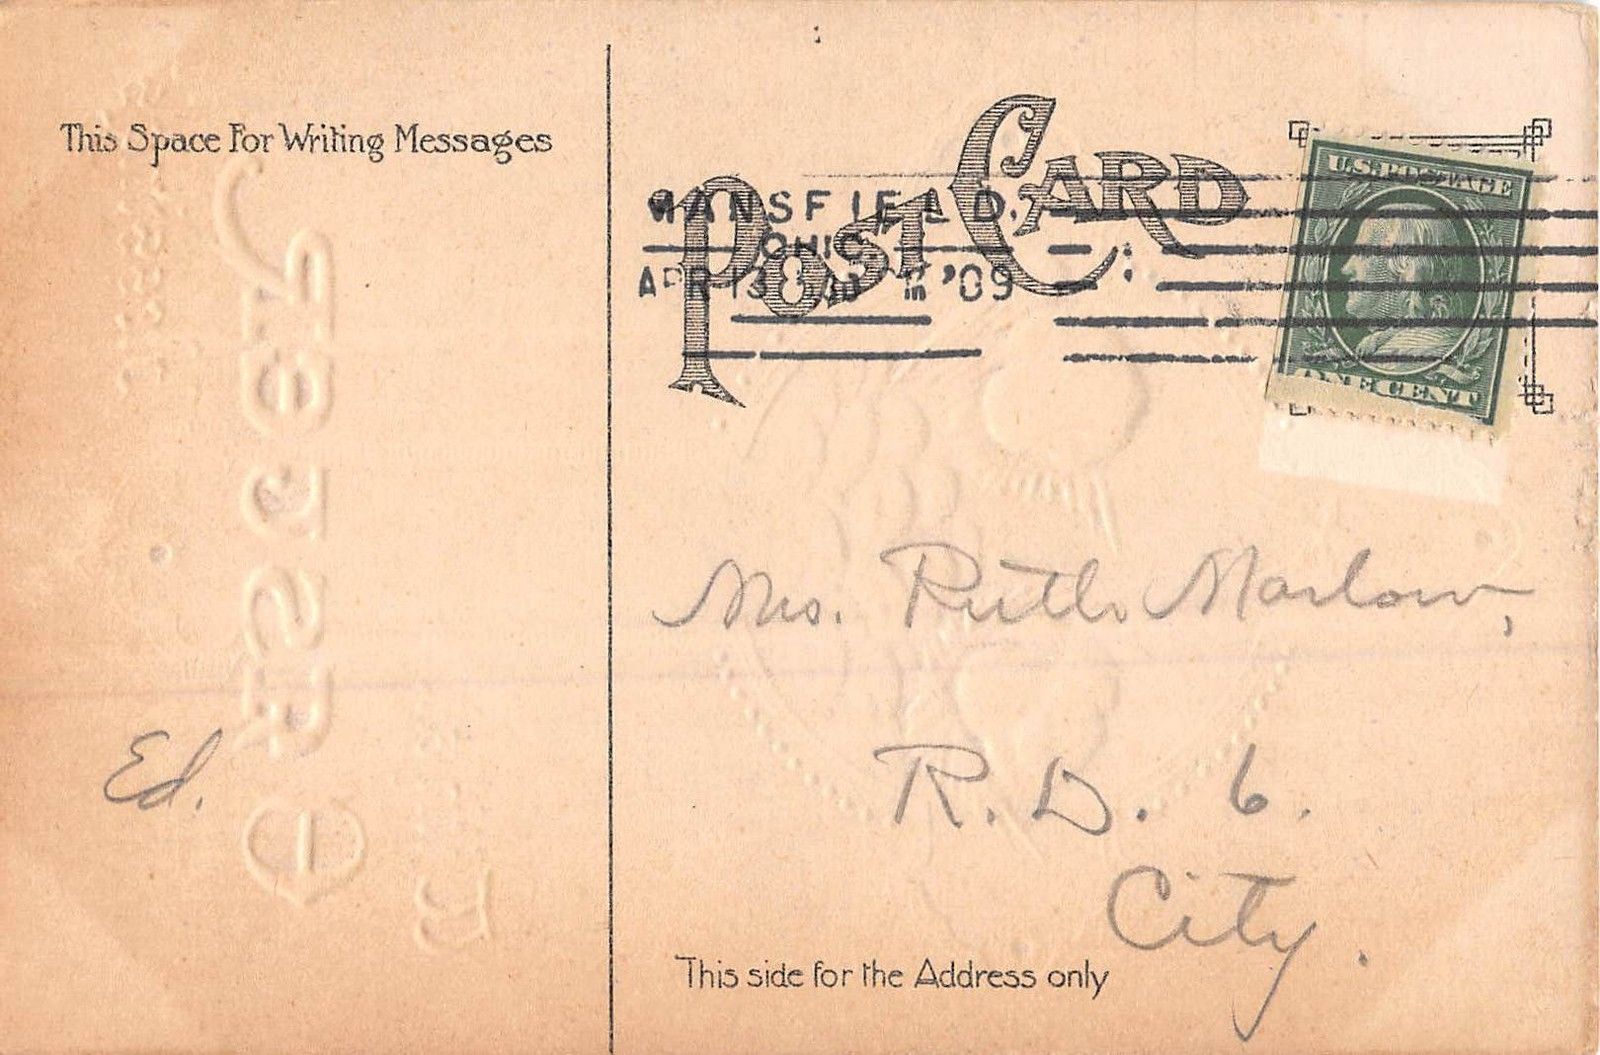 This Space For Writing Messages
POST CARD
MANSFIELD,
OHIO.
APR 13 '09
U.S. POSTAGE
ONE CENT
Mrs. Ruth Marlow,
R. D. 6.
City.
Ed.
This side for the Address only